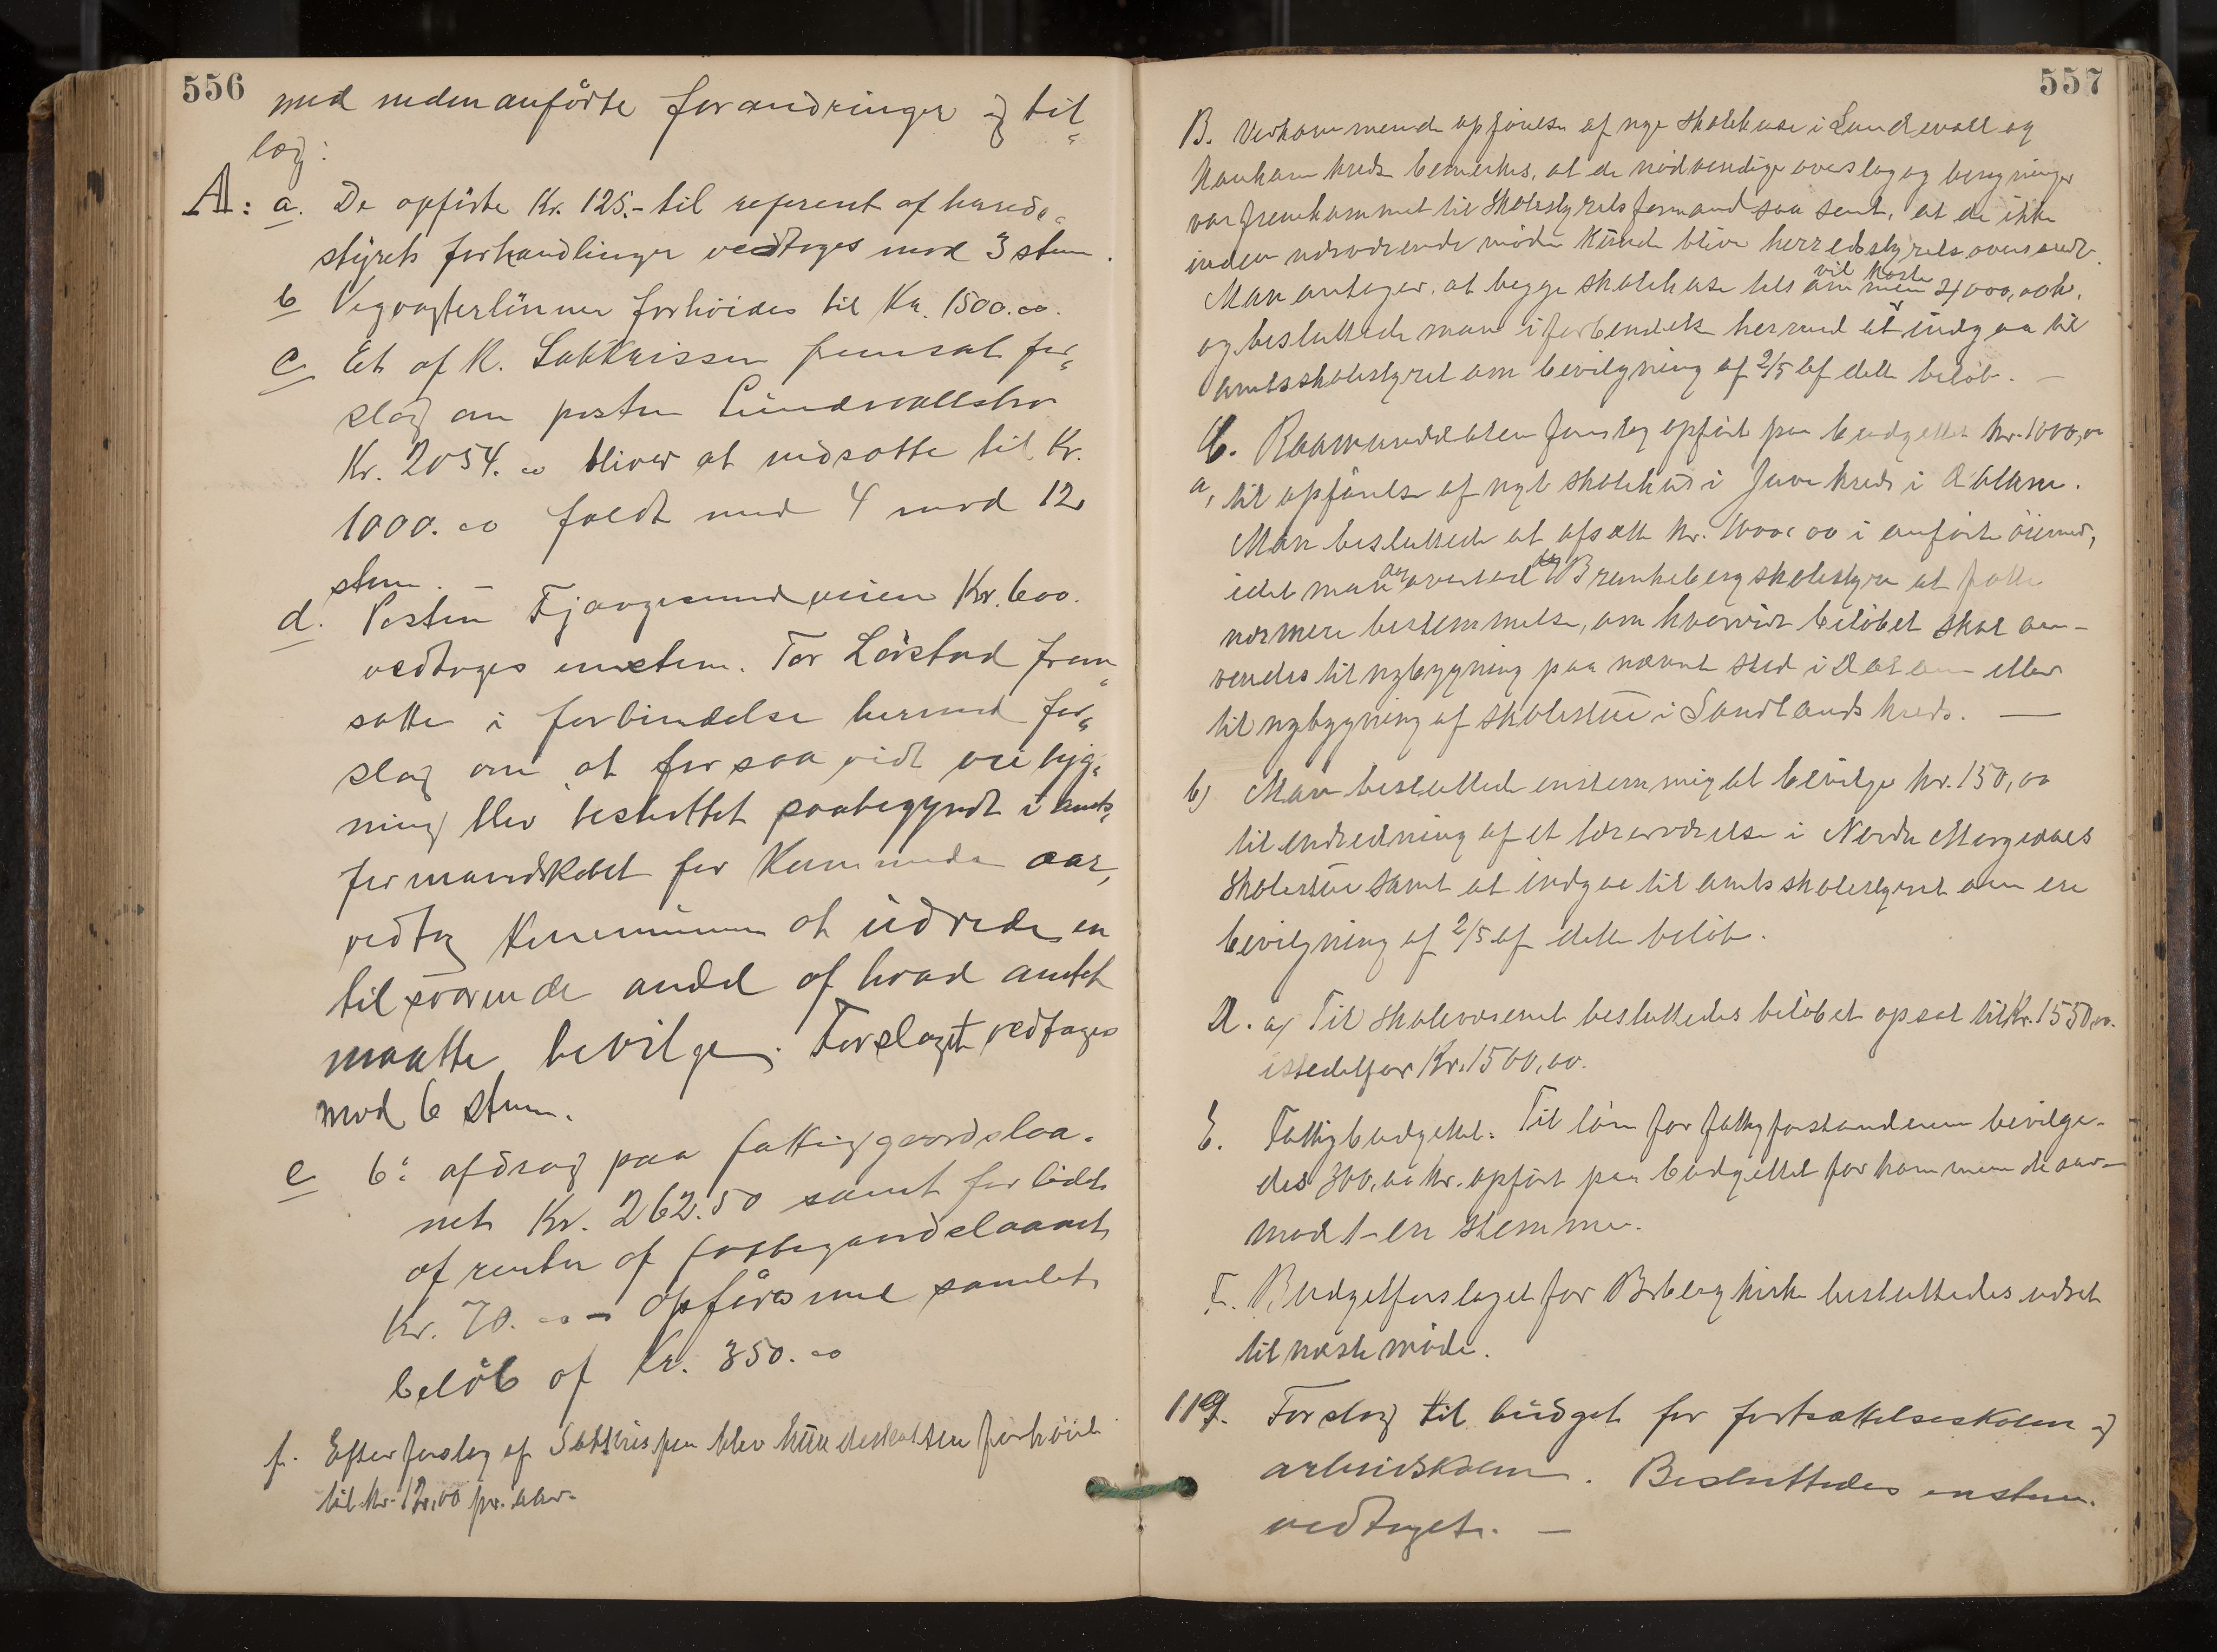 556
med nedenanførte forandringer og til-
læg:
A: a. De opførte Kr. 125.- til referent af herreds-
styrets forhandlinger vedtoges mod 3 stem.
b Vegvogterlønnen forhøides til Kr. 1500.00.
c Et af K. Sakkrissen fremsat for-
slag om posten Lundevallsbro
Kr. 2054.00 bliver at nedsætte til Kr.
1000.00 faldt med 4 mod 12
stem. -
d. Posten Fjaagesundveien Kr. 600.
vedtoges enstem. Tor Lørstad frem-
satte i forbindelse hermed for-
slag om at forsaavidt veibyg-
ning blev besluttet paabegyndt i amts-
formandskabet for kommende aar,
vedtog kommunen at udrede en
tilsvarende andel af hvad amtet
maatte bevilge. Forslaget vedtages
mod 6 stem.
e 6: afdrag paa fattiggaardslaa-
net Kr. 262.50 samt forlidet
af renter af fattiggaardslaanet
Kr. 70.00 - opføres med samlet
beløb af Kr. 350.00
f. Efter forslag af Sakkrissen blev hundeskatten forhøiet
til Kr. 12,00 pr. aar.
557
B. Vedkommende opførelse af nye skolehuse i Lundevall og
kreds bemerkes, at de nødvendige overslag og tegninger
var fremkommet til skolestyrets formand saa sent, at de ikke
inden nærværende møde kunde blive herredsstyret oversendt.
Man antager, at begge skolehuse tils vil koste 4000,00 kr.
og besluttede man i forbindelse hermed at indgaa til
amtsskolestyret om bevilgning af 2/5 af dette beløb. -
C. forslag opført paa budgettet kr. 1000,00
a, til opførelse af nyt skolehus i Juve kreds i Dalane.
Man besluttede at afsætte kr. 1000,00 i anførte øiemed,
idet man overlod til Brunkeberg skolestyre at fatte
nærmere bestemmelse, om hvorvidt beløbet skal an-
vendes til nybygning paa nævnt sted i Dalane eller
til nybygning af skolestue i Sundlands kreds. -
b) Man besluttede enstemmig at bevilge kr. 150,00
til indredning af et lærerværelse i Nordre Morgedals
skolestue samt at indgaa til amtsskolestyret om en
bevilgning af 2/5 af dette beløb.
D. a) Til skolevæsenet besluttedes beløbet opsat til Kr. 1550,00.
istedetfor Kr. 1500,00.
E. Fattigbudgettet: Til løn for fattigforstanderen bevilge-
des 300,00 kr. opført paa budgettet for kommende aar -
mod 1 - en stemme.
F. Budgetforslaget for Brbeg kirke besluttedes udsat
til næste møde.
119. Forslag til budget for fortsættelsesskolen og
arbeidsskolen. Besluttedes enstem.
vedtaget. -